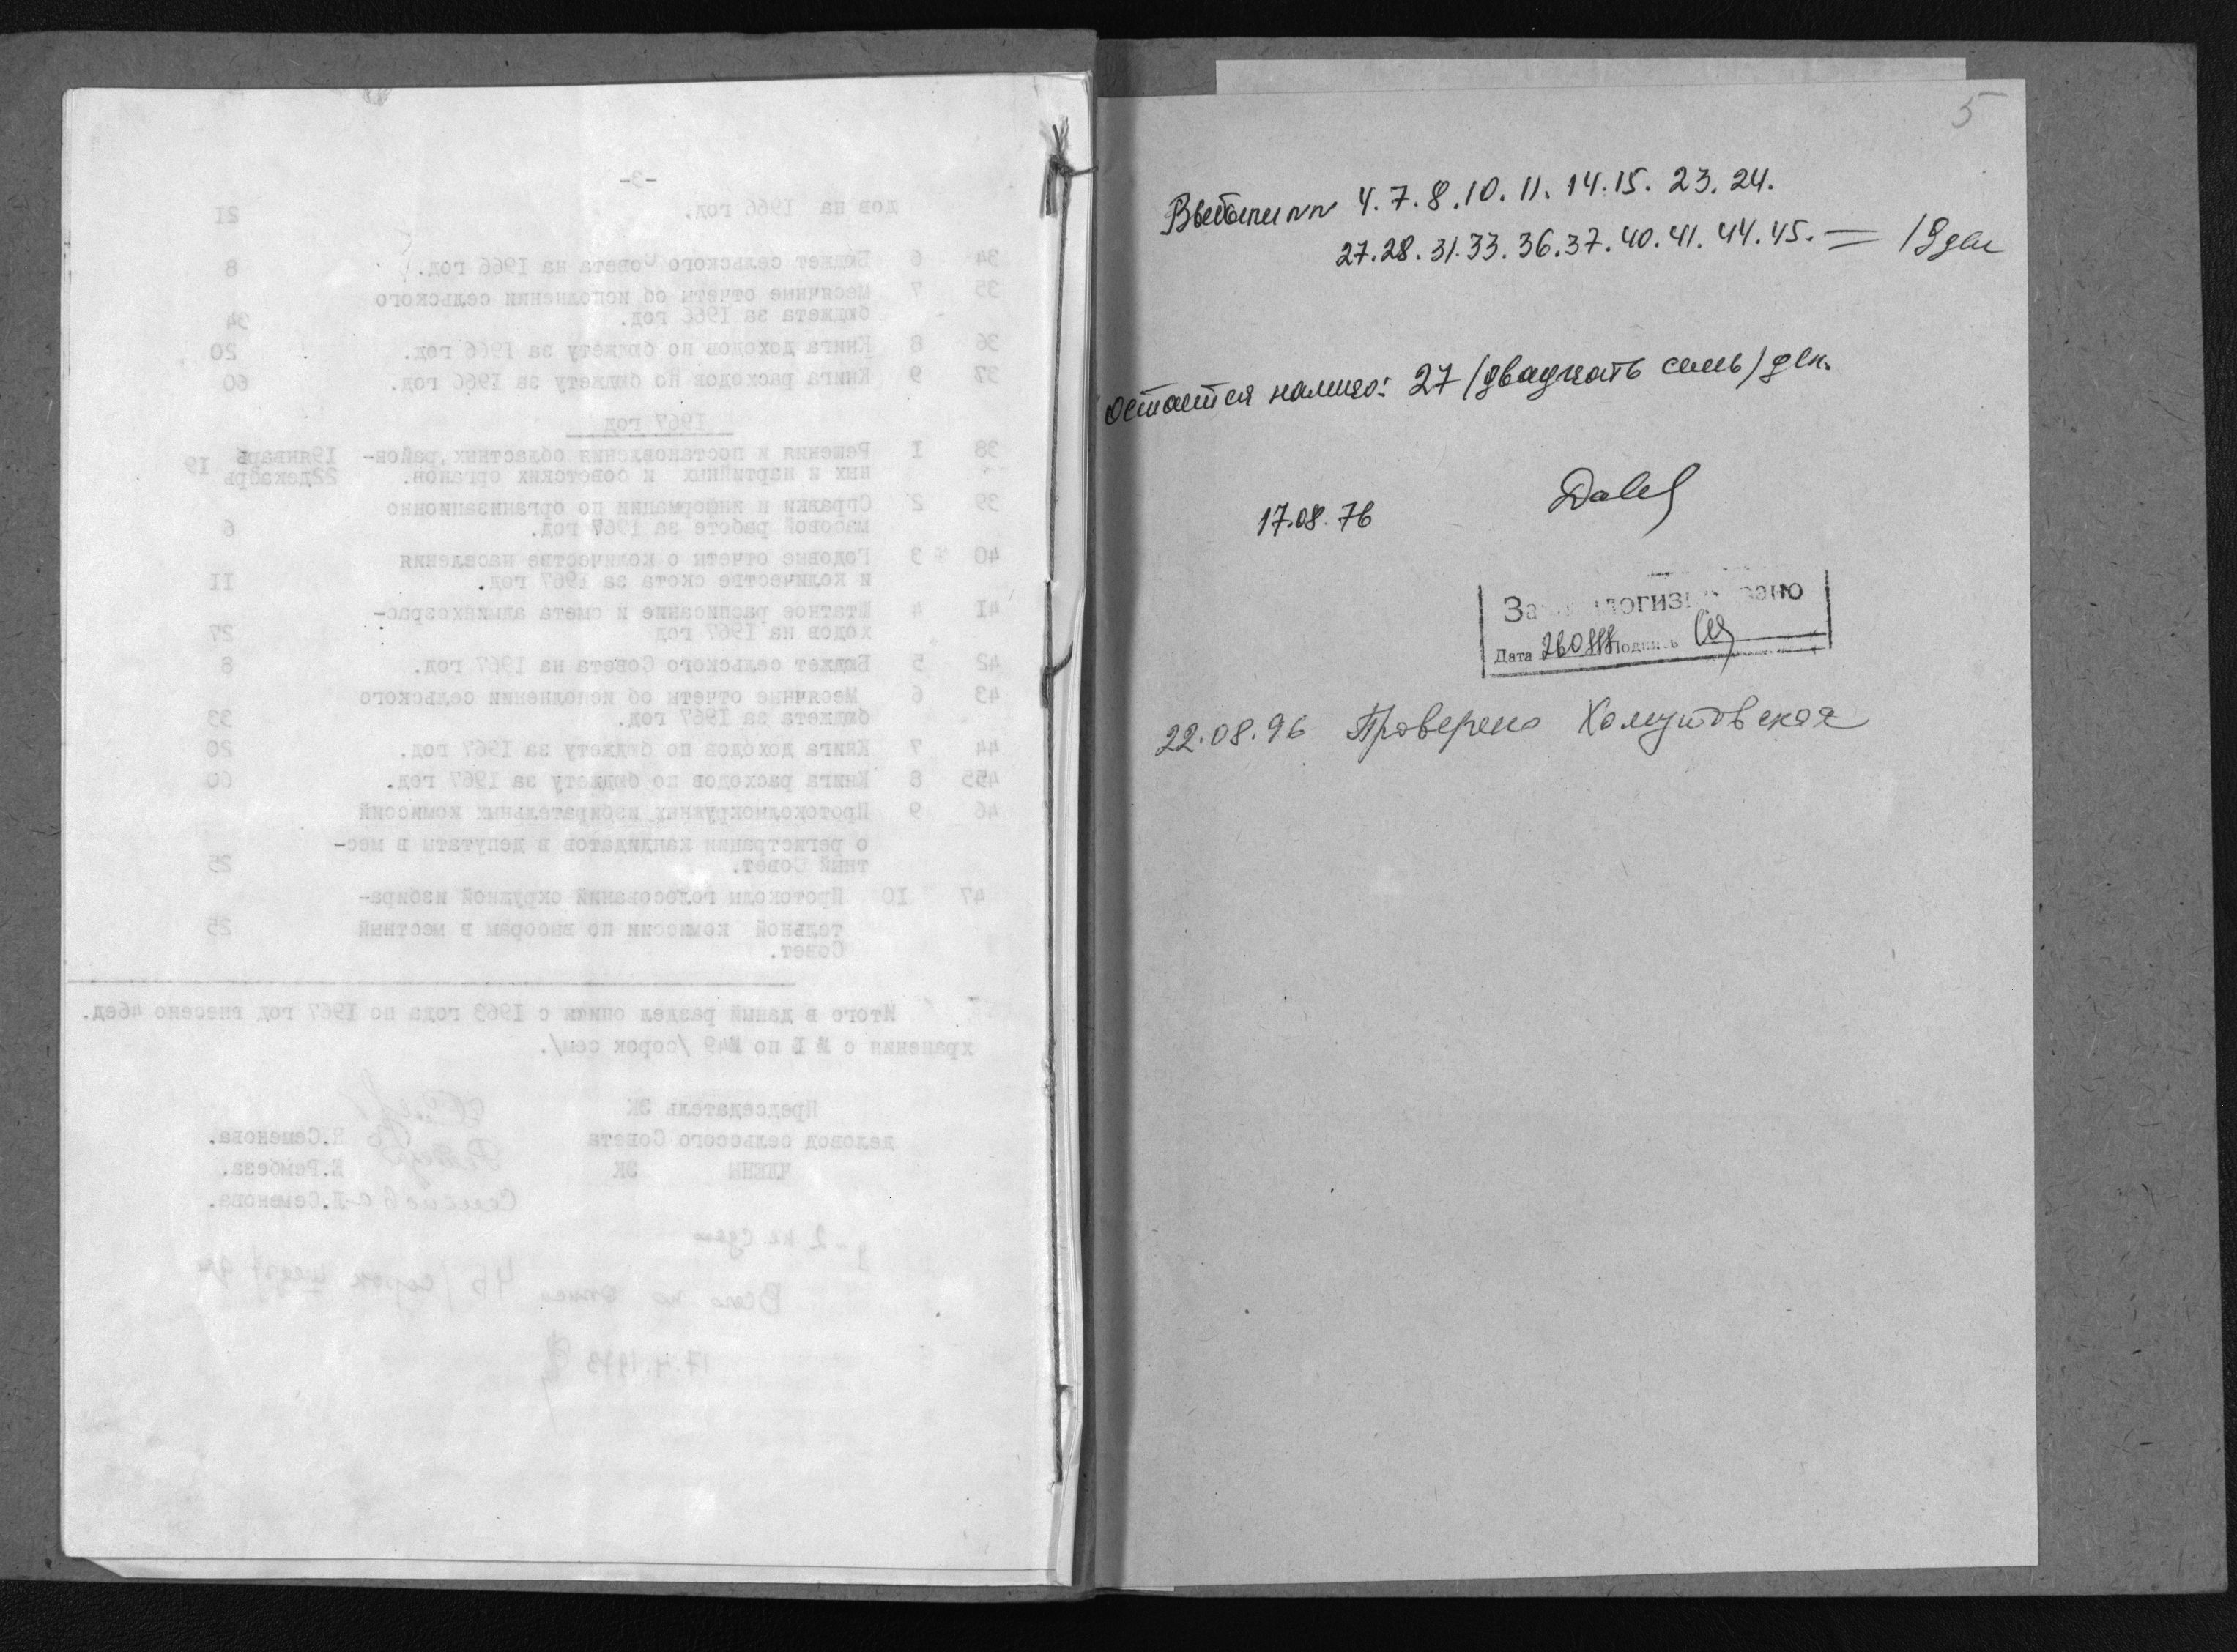 -3-
дов на 1966 год. 21
34 6 Бюджет сельского Совета на 1966 год. 8
35 7 Месячные отчеты об исполнении сельского
бюджета за 1966 год. 34
36 8 Книга доходов по бюджету за 1966 год. 20
37 9 Книга расходов по бюджету за 1966 год. 60
1967 год
38 I Решения и постановления областных, район- 19январь
ных и партийных и советских органов. 22декабрь 19
39 2 Справки и информации по организационно
массовой работе за 1967 год. 6
40 3 Годовые отчеты о количестве населения
и количестве скота за 1967 год. II
4I 4 Штатное расписание и смета админхозрас-
ходов на 1967 год 27
42 5 Бюджет сельского Совета на 1967 год. 8
43 6 Месячные отчеты об исполнении сельского
бюджета за 1967 год. 33
44 7 Книга доходов по бюджету за 1967 год. 20
455 8 Книга расходов по бюджету за 1967 год.
46 9 избирательных комиссий
о регистрации кандидатов в депутаты в мес-
тный Совет. 25
47 IO Протоколы голосований окружной избира-
тельной комиссии по выборам в местный 25
Совет.
Итого в даный раздел описи с 1963 года по 1967 год внесено 46ед.
хранения с № I по №49 /сорок сем/.
Председатель ЭК
деловод сельсого Совета Н.Семенова.
ЧЛЕНЫ ЭК К.Рембеза.
Л.Семенова.
Всего по описи 46 /сорок шесть/ дел
17.4.1973
5
Выбыли NN 4.7.8.10.11.14.15.23.24.
27.28.31.33.36.37.40.41.44.45. = 19 дел
остается налицо: 27 /двадцать семь/ дел.
17.08.76
Дата Подпись
22.08.96 Проверено Хомутовская